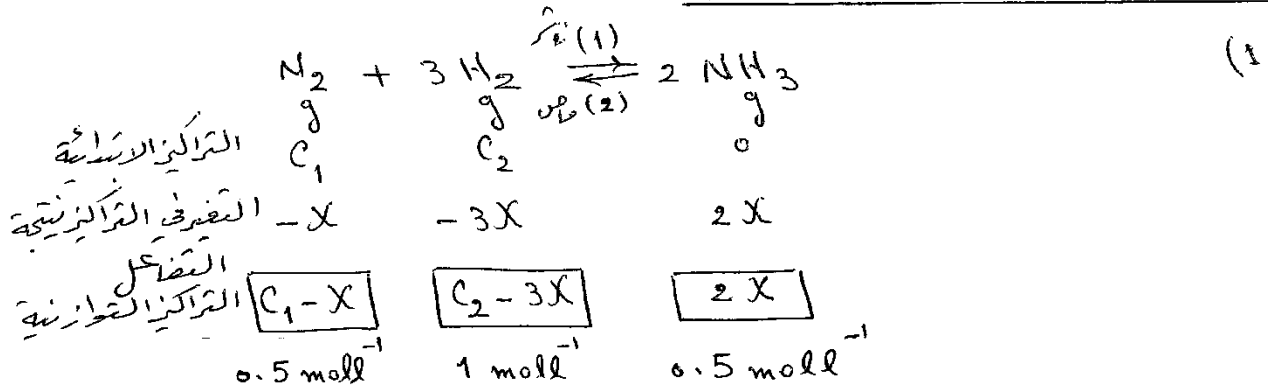 (1
N₂ + 3 H₂ ⇌ 2 NH₃
(1) نشر
(2) ماص
g g g
التراكيز الابتدائية C₁ C₂ 0
التغير في التراكيز نتيجة التفاعل -X -3X 2X
التراكيز التوازنية C₁-X C₂-3X 2X
0.5 moll⁻¹ 1 moll⁻¹ 0.5 moll⁻¹